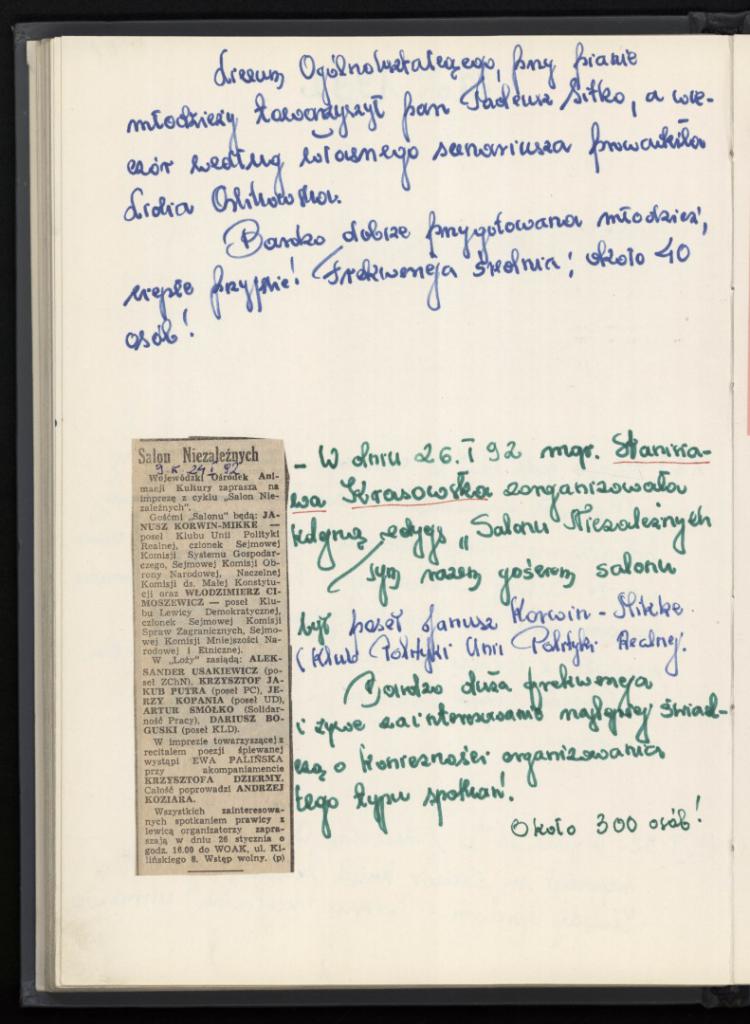 Liceum Ogólnokształcącego, przy pianie
młodzieży towarzyszył pan Tadeusz Sitko, a wie-
czór według własnego scenariusza prowadziła
Lidia
Bardzo dobrze przygotowana młodzież,
ciepłe przyjęcie! Frekwencja średnia; około 40
osób!
Salon Niezależnych
24 I 92
Wojewódzki Ośrodek Ani-
macji Kultury zaprasza na
imprezę z cyklu „Salon Nie-
zależnych".
Gośćmi „Salonu" będą: JA-
NUSZ KORWIN-MIKKE —
poseł Klubu Unii Polityki
Realnej, członek Sejmowej
Komisji Systemu Gospodar-
czego, Sejmowej Komisji Ob-
rony Narodowej, Naczelnej
Komisji ds. Małej Konstytu-
cji oraz WŁODZIMIERZ CI-
MOSZEWICZ — poseł Klu-
bu Lewicy Demokratycznej,
członek Sejmowej Komisji
Spraw Zagranicznych, Sejmo-
wej Komisji Mniejszości Na-
rodowej i Etnicznej.
W „Loży" zasiądą: ALEK-
SANDER USAKIEWICZ (po-
seł ZChN), KRZYSZTOF JA-
KUB PUTRA (poseł PC), JE-
RZY KOPANIA (poseł UD),
ARTUR SMÓŁKO (Solidar-
ność Pracy), DARIUSZ BO-
GUSKI (poseł KLD).
W imprezie towarzyszącej z
recitalem poezji śpiewanej
wystąpi EWA PALIŃSKA
przy akompaniamencie
KRZYSZTOFA DZIERMY.
Całość poprowadzi ANDRZEJ
KOZIARA.
Wszystkich zainteresowa-
nych spotkaniem prawicy z
lewicą organizatorzy zapra-
szają w dniu 26 stycznia o
godz. 16.00 do WOAK, ul. Ki-
lińskiego 8. Wstęp wolny. (p)
– W dniu 26. I 92 mgr. Stanisła-
wa Krasowska zorganizowała
kolejną edycję „Salonu Niezależnych
Tym razem gościem salonu
był poseł Janusz Korwin-Mikke
(Klub Polityki Unii Polityki Realnej.
Bardzo duża frekwencja
i żywe zainteresowanie najlepiej świad-
czą o konieczności organizowania
tego typu spotkań!
Około 300 osób!